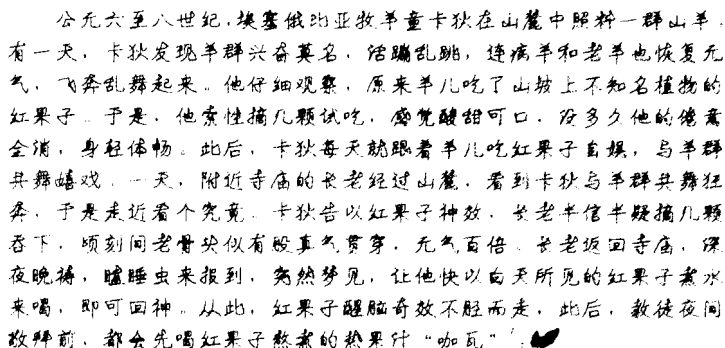 公元六至八世纪，埃塞俄比亚牧羊童卡狄在山麓中照料一群山羊，
有一天，卡狄发现羊群兴奋莫名，活蹦乱跳，连病羊和老羊也恢复元
气，飞奔乱舞起来。他仔细观察，原来羊儿吃了山坡上不知名植物的
红果子。于是，他索性摘几颗试吃，感觉酸甜可口，没多久他的倦意
全消，身轻体畅。此后，卡狄每天就跟着羊儿吃红果子自娱，与羊群
共舞嬉戏。一天，附近寺庙的长老经过山麓，看到卡狄与羊群共舞狂
奔，于是走近看个究竟。卡狄告以红果子神效，长老半信半疑摘几颗
吞下，顷刻间老骨头似有股真气贯穿，元气百倍。长老返回寺庙，深
夜晚祷，瞌睡虫来报到，突然梦见，让他快以白天所见的红果子煮水
来喝，即可回神。从此，红果子醒脑奇效不胫而走，此后，教徒夜间
敬拜前，都会先喝红果子熬煮的热果汁“咖瓦”。